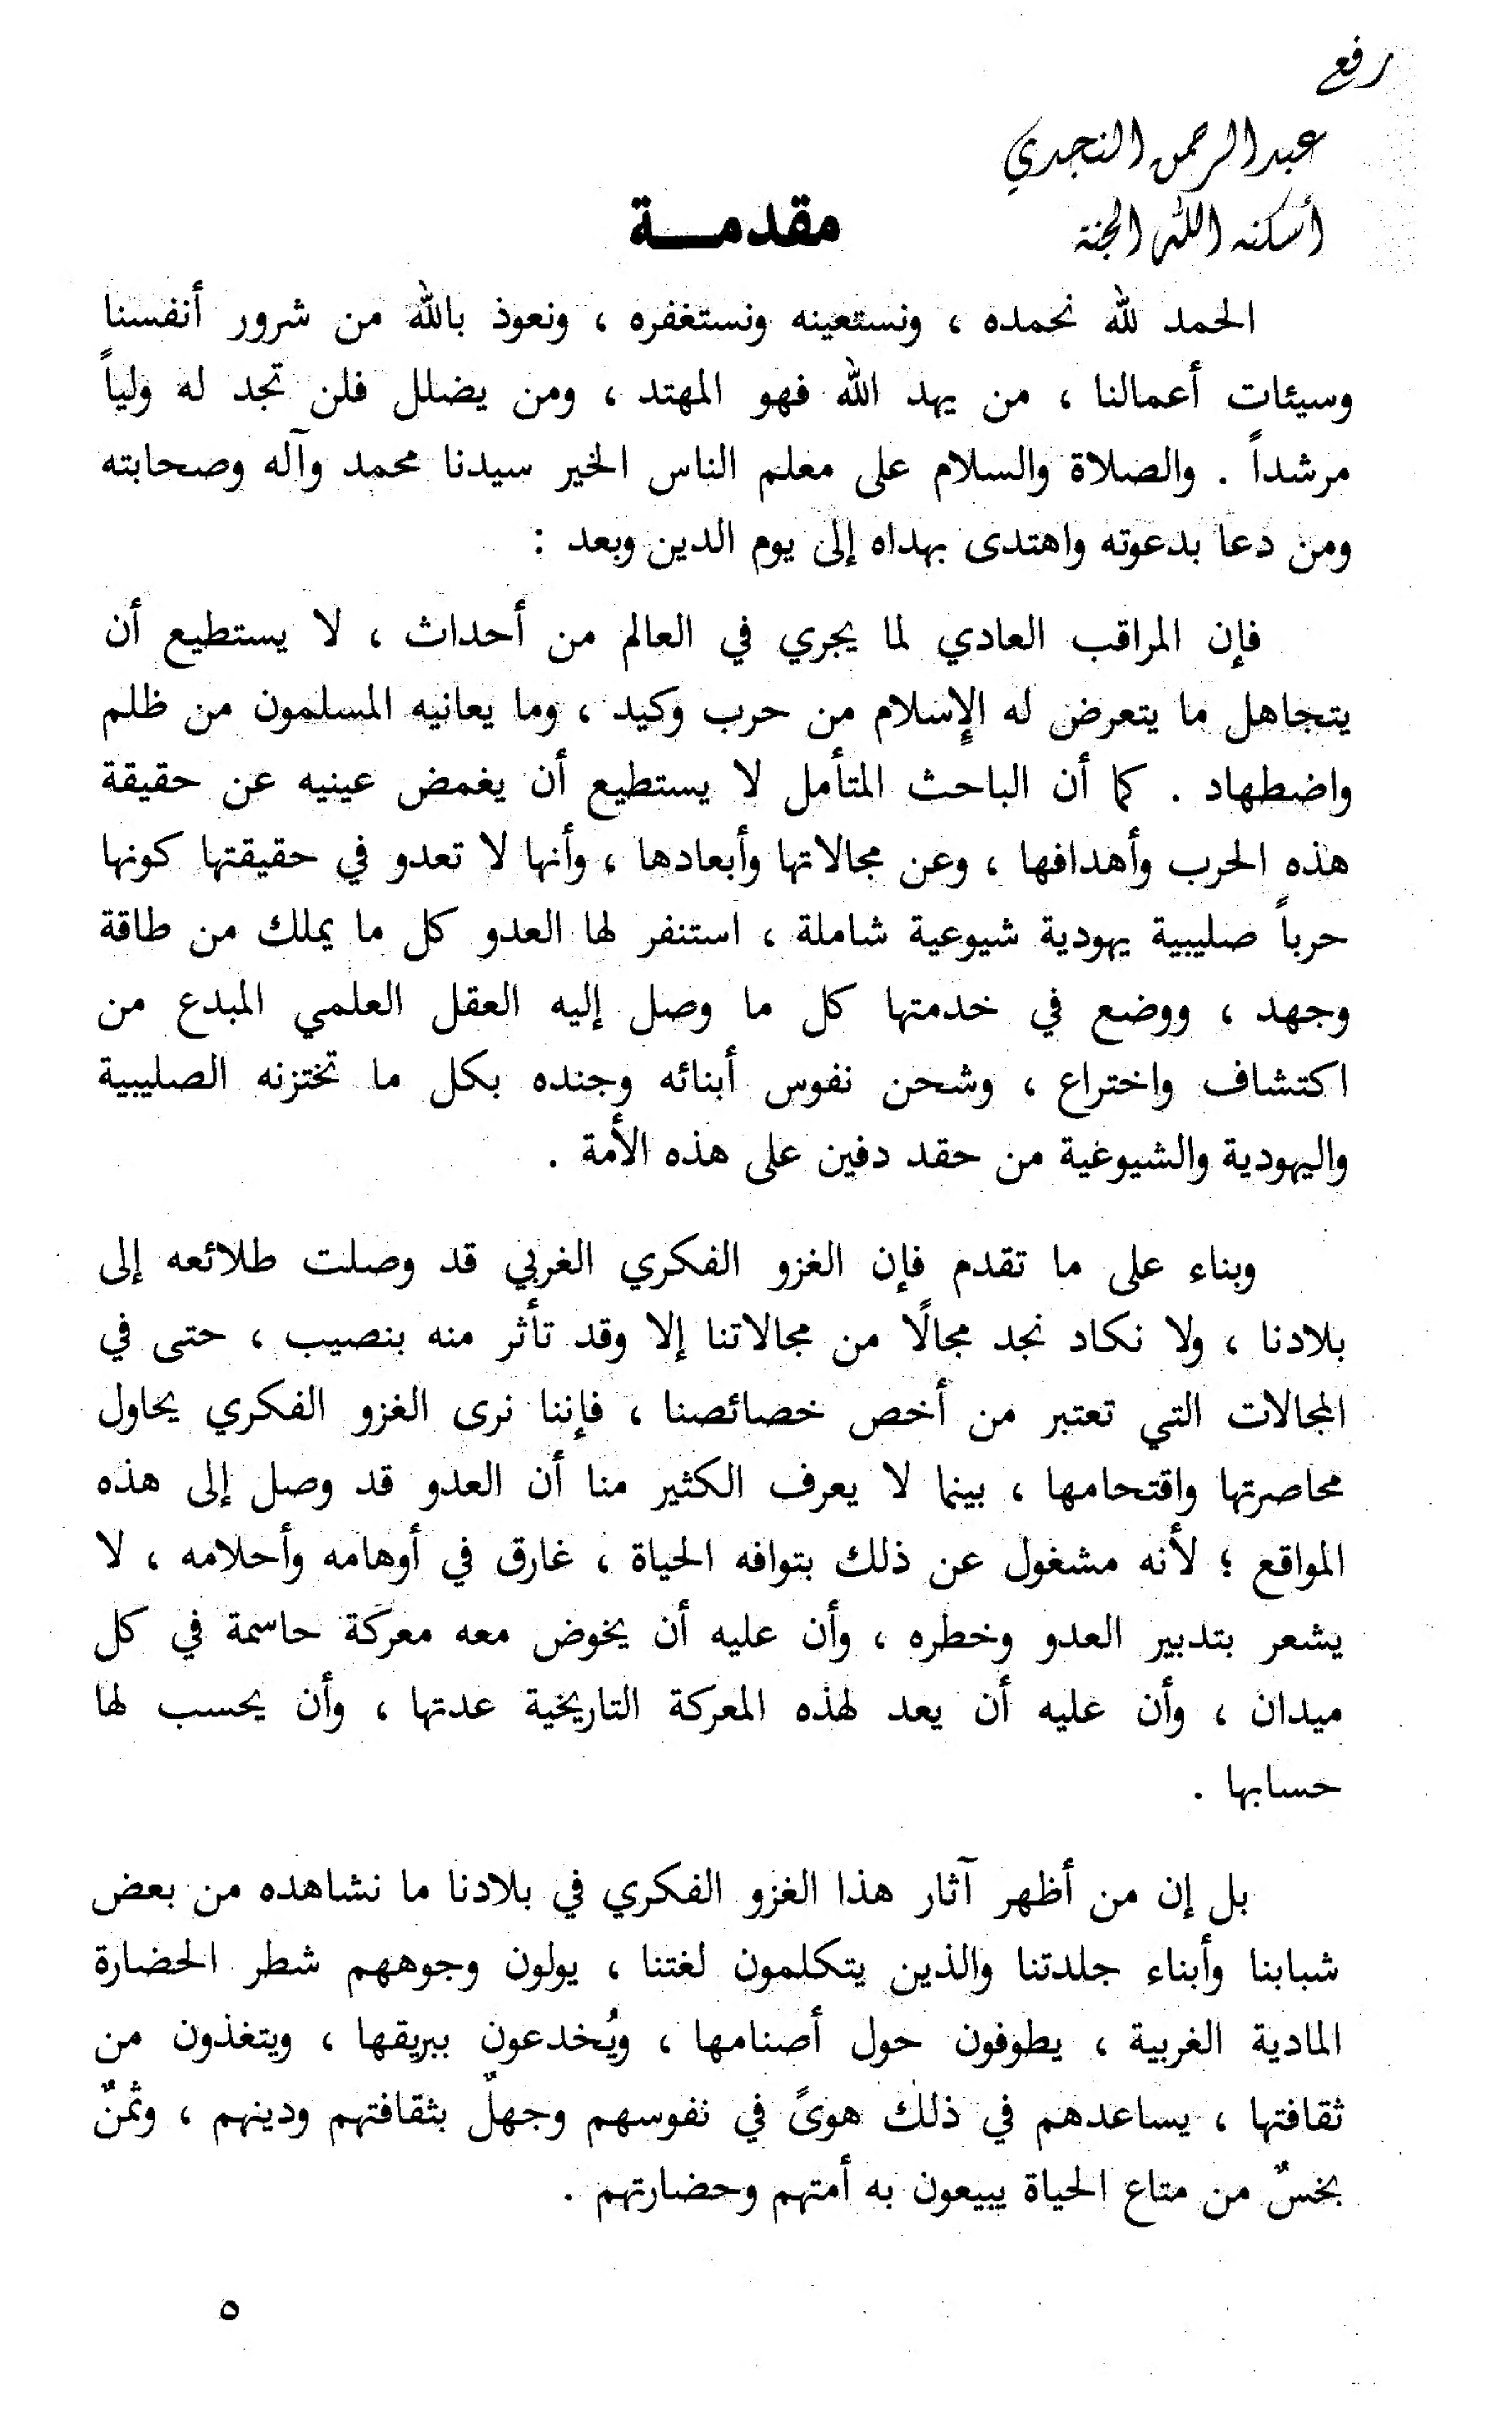 رفع
عبد الرحمن النجدي
أسكنه الله الجنة
مقدمـــة
الحمد لله نحمده ، ونستعينه ونستغفره ، ونعوذ بالله من شرور أنفسنا
وسيئات أعمالنا ، من يهد الله فهو المهتد ، ومن يضلل فلن تجد له ولياً
مرشداً . والصلاة والسلام على معلم الناس الخير سيدنا محمد وآله وصحابته
ومن دعا بدعوته واهتدى بهداه إلى يوم الدين وبعد :
فإن المراقب العادي لما يجري في العالم من أحداث ، لا يستطيع أن
يتجاهل ما يتعرض له الإسلام من حرب وكيد ، وما يعانيه المسلمون من ظلم
واضطهاد . كما أن الباحث المتأمل لا يستطيع أن يغمض عينيه عن حقيقة
هذه الحرب وأهدافها ، وعن مجالاتها وأبعادها ، وأنها لا تعدو في حقيقتها كونها
حرباً صليبية يهودية شيوعية شاملة ، استنفر لها العدو كل ما يملك من طاقة
وجهد ، ووضع في خدمتها كل ما وصل إليه العقل العلمي المبدع من
اكتشاف واختراع ، وشحن نفوس أبنائه وجنده بكل ما تختزنه الصليبية
واليهودية والشيوغية من حقد دفين على هذه الأمة .
وبناء على ما تقدم فإن الغزو الفكري الغربي قد وصلت طلائعه إلى
بلادنا ، ولا نكاد نجد مجالًا من مجالاتنا إلا وقد تأثر منه بنصيب ، حتى في
المجالات التي تعتبر من أخص خصائصنا ، فإننا نرى الغزو الفكري يحاول
محاصرتها واقتحامها ، بينما لا يعرف الكثير منا أن العدو قد وصل إلى هذه
المواقع ؛ لأنه مشغول عن ذلك بتوافه الحياة ، غارق في أوهامه وأحلامه ، لا
يشعر بتدبير العدو وخطره ، وأن عليه أن يخوض معه معركة حاسمة في كل
ميدان ، وأن عليه أن يعد لهذه المعركة التاريخية عدتها ، وأن يحسب لها
حسابها .
بل إن من أظهر آثار هذا الغزو الفكري في بلادنا ما نشاهده من بعض
شبابنا وأبناء جلدتنا والذين يتكلمون لغتنا ، يولون وجوههم شطر الحضارة
المادية الغربية ، يطوفون حول أصنامها ، ويُخدعون ببريقها ، ويتغذون من
ثقافتها ، يساعدهم في ذلك هوىً في نفوسهم وجهلٌ بثقافتهم ودينهم ، وثمنٌ
بخسٌ من متاع الحياة يبيعون به أمتهم وحضارتهم .
٥